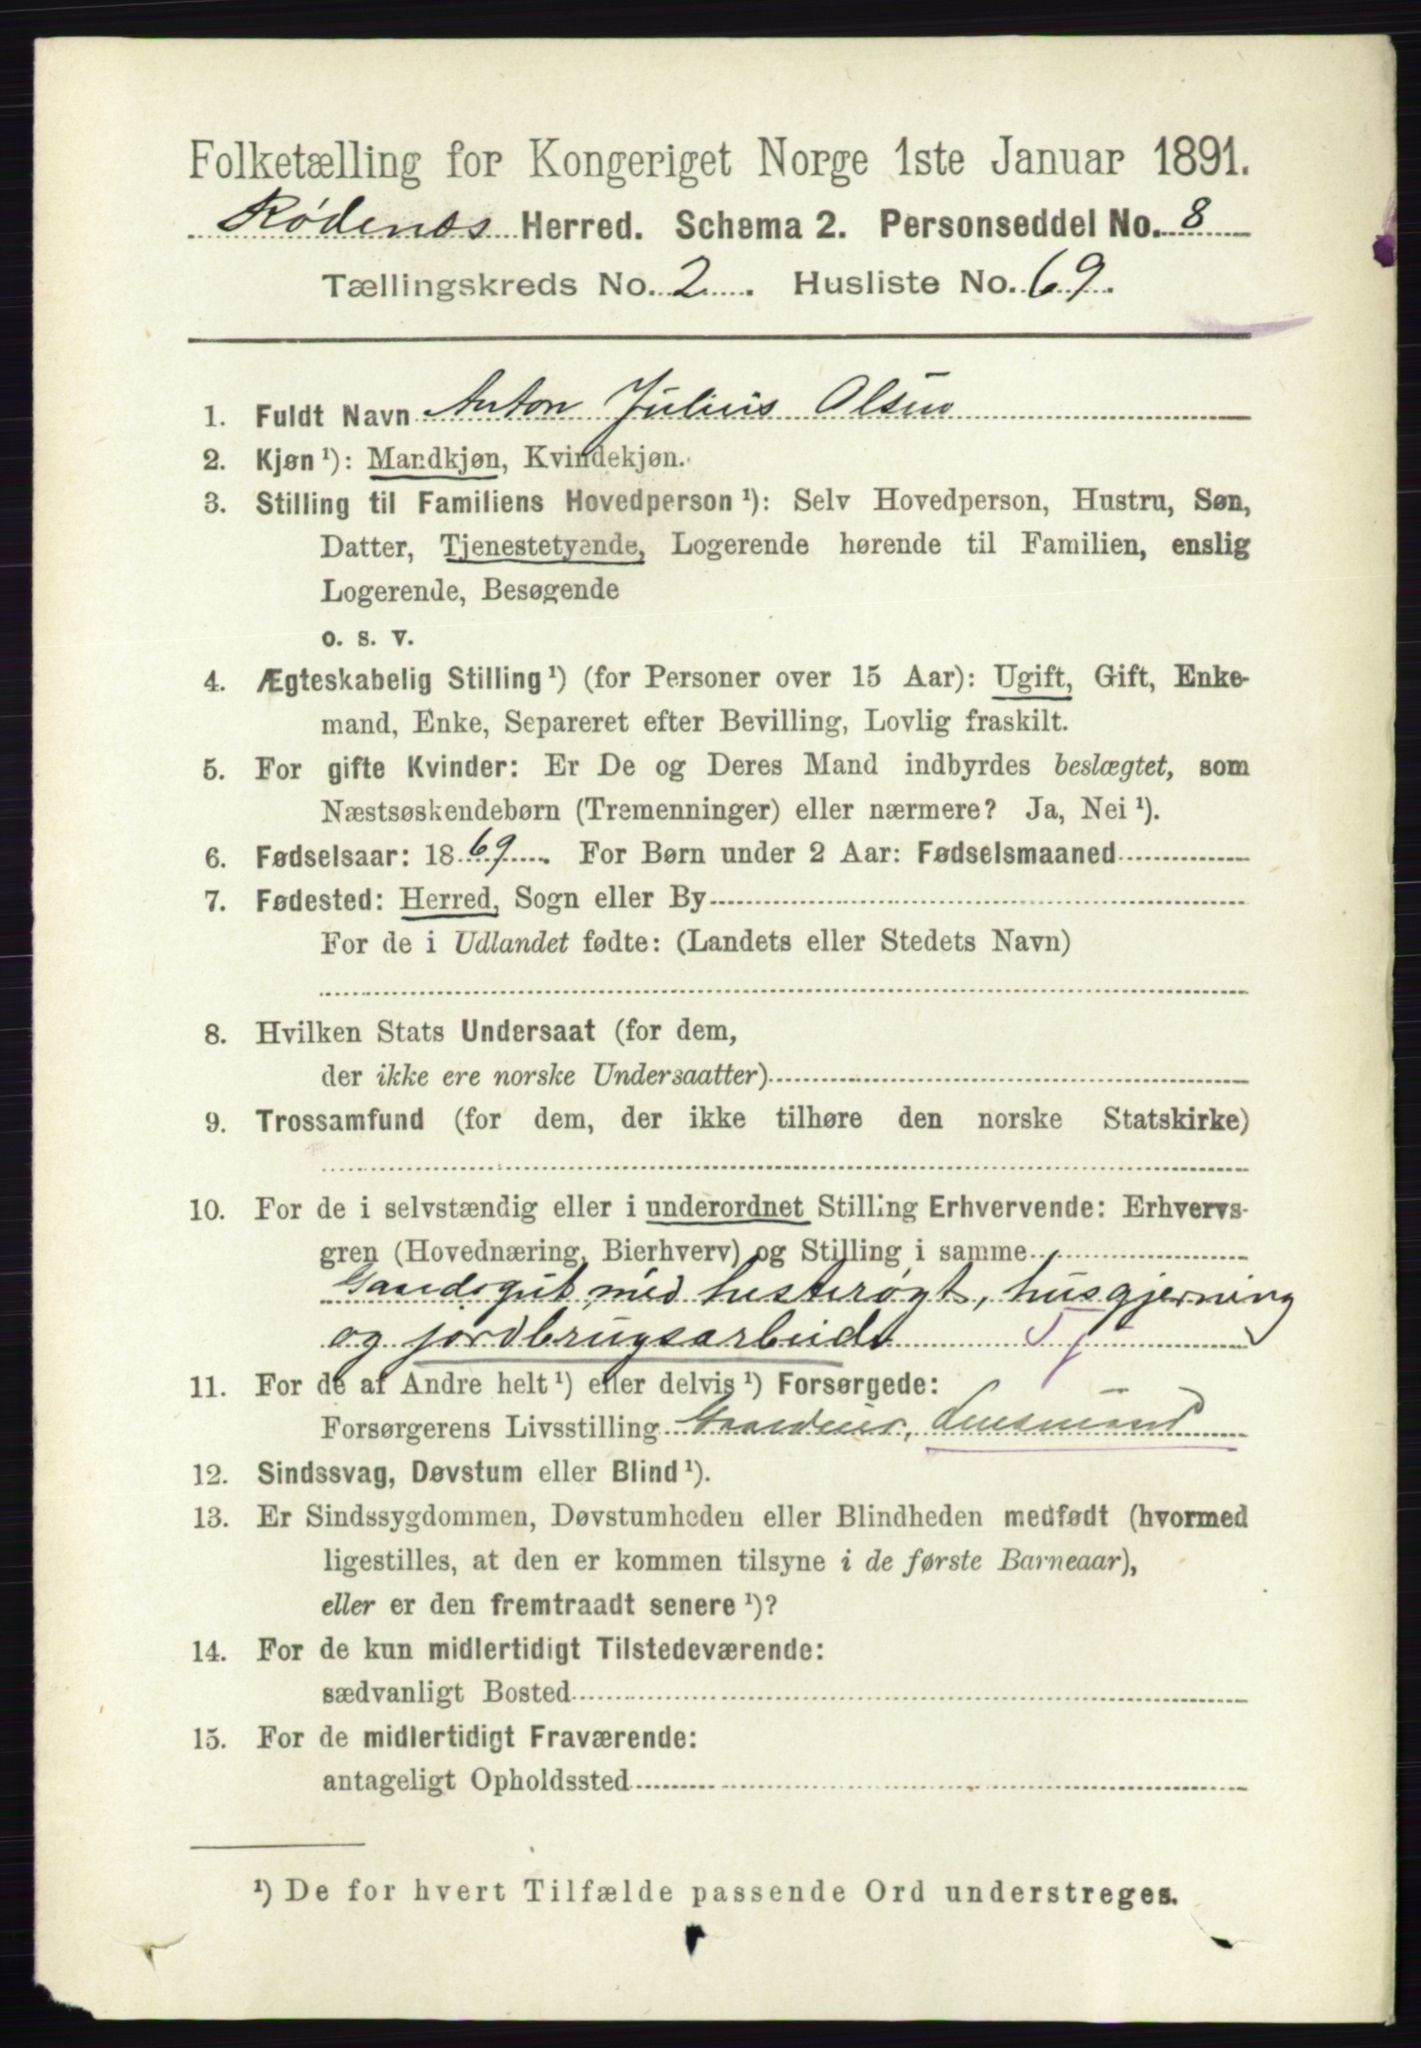 Folketælling for Kongeriget Norge 1ste Januar 1891.
Rødenes Herred. Schema 2. Personseddel No. 8
Tællingskreds No. 2. Husliste No. 69.
1. Fuldt Navn Anton Julius Olsen
2. Kjøn ¹): Mandkjøn, Kvindekjøn.
3. Stilling til Familiens Hovedperson ¹): Selv Hovedperson, Hustru, Søn,
Datter, Tjenestetyende, Logerende hørende til Familien, enslig
Logerende, Besøgende
o. s. v.
4. Ægteskabelig Stilling ¹) (for Personer over 15 Aar): Ugift, Gift, Enke-
mand, Enke, Separeret efter Bevilling, Lovlig fraskilt.
5. For gifte Kvinder: Er De og Deres Mand indbyrdes beslægtet, som
Næstsøskendebørn (Tremenninger) eller nærmere? Ja, Nei ¹).
6. Fødselsaar: 1869. For Børn under 2 Aar: Fødselsmaaned
7. Fødested: Herred, Sogn eller By
For de i Udlandet fødte: (Landets eller Stedets Navn)
8. Hvilken Stats Undersaat (for dem,
der ikke ere norske Undersaatter)
9. Trossamfund (for dem, der ikke tilhøre den norske Statskirke)
10. For de i selvstændig eller i underordnet Stilling Erhvervende: Erhvervs-
gren (Hovednæring, Bierhverv) og Stilling i samme
Gaardsgut med hesterøgt, husgjerning
og jordbrugsarbeide
11. For de af Andre helt ¹) eller delvis ¹) Forsørgede:
Forsørgerens Livsstilling Gaardeier, Lensmand
12. Sindssvag, Døvstum eller Blind ¹).
13. Er Sindssygdommen, Døvstumheden eller Blindheden medfødt (hvormed
ligestilles, at den er kommen tilsyne i de første Barneaar),
eller er den fremtraadt senere ¹)?
14. For de kun midlertidigt Tilstedeværende:
sædvanligt Bosted
15. For de midlertidigt Fraværende:
antageligt Opholdssted
¹) De for hvert Tilfælde passende Ord understreges.